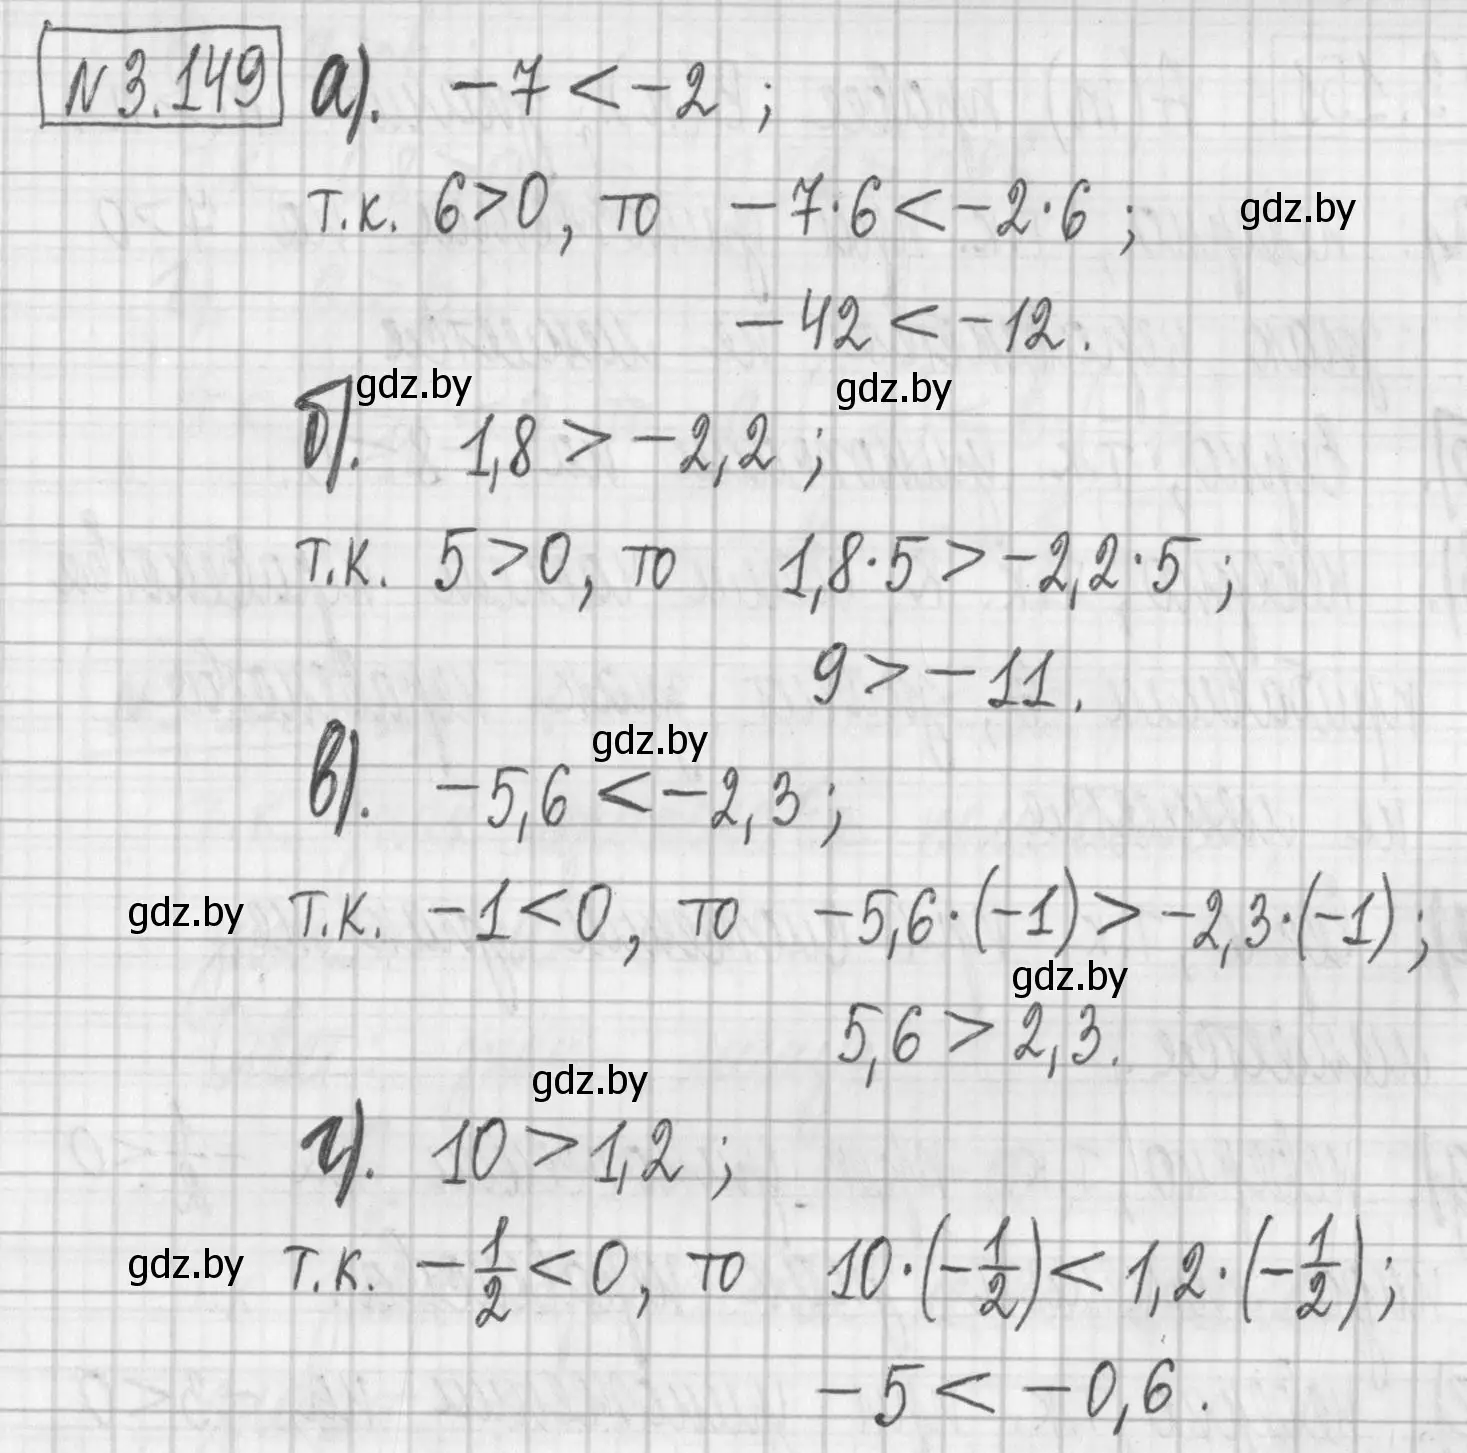 N 3.149 а). −7 < −2 ;
т.к. 6 > 0, то −7·6 < −2·6 ; gdz.by
−42 < −12.
gdz.by gdz.by
б). 1,8 > −2,2 ;
т.к. 5 > 0, то 1,8·5 > −2,2·5 ;
9 > −11.
gdz.by
в). −5,6 < −2,3 ;
gdz.by т.к. −1 < 0, то −5,6·(−1) > −2,3·(−1) ;
gdz.by
5,6 > 2,3.
gdz.by
г). 10 > 1,2 ;
gdz.by т.к. −1/2 < 0, то 10·(−1/2) < 1,2·(−1/2) ;
−5 < −0,6.